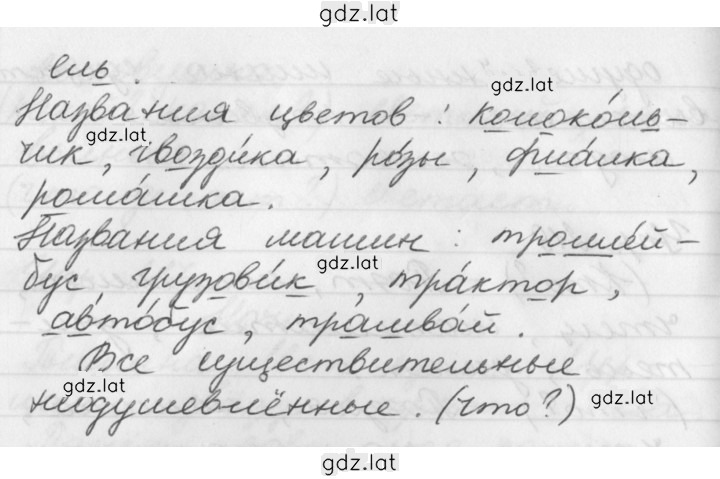 gdz.lat
ель.
gdz.lat
Названия цветов: колоколь-
gdz.lat
чик, гвоздика, розы, фиалка,
ромашка.
Названия машин: троллей-
gdz.lat
бус, грузовик, трактор,
автобус, трамвай.
Все существительные
gdz.lat
неодушевлённые. (что?)
gdz.lat
gdz.lat